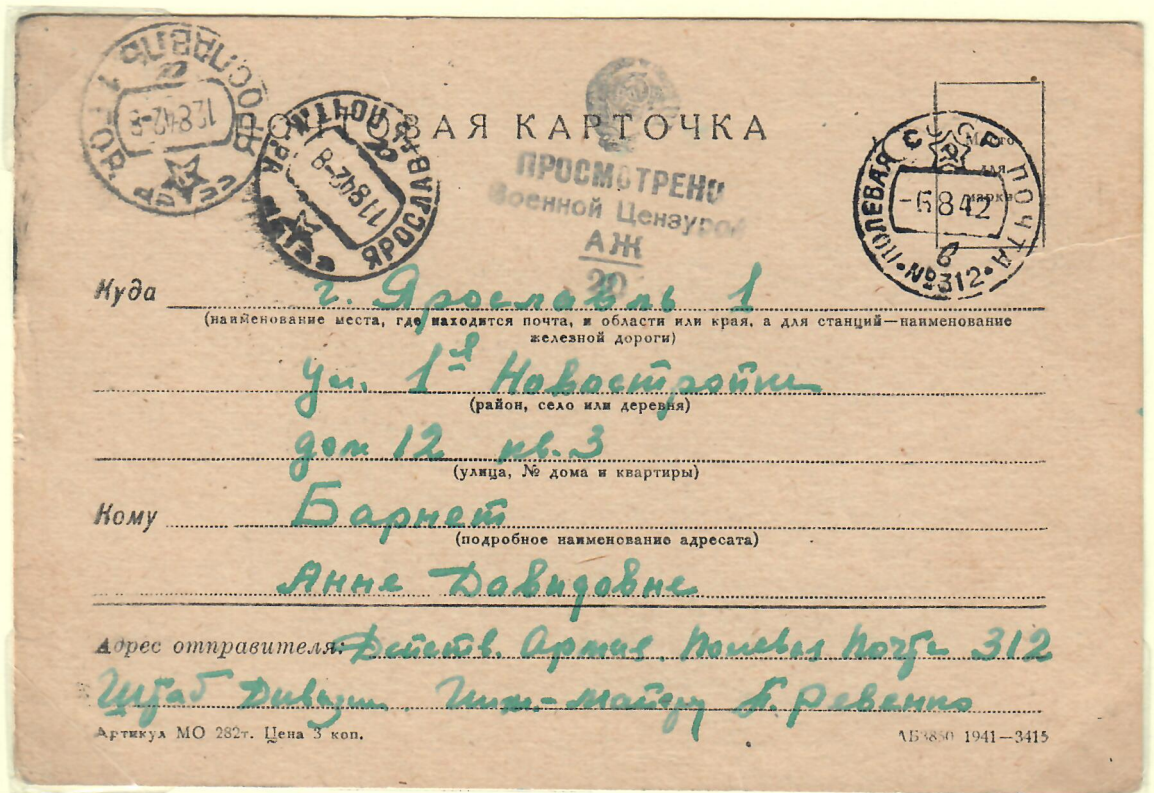 ЯРОСЛАВЛЬ 1 ГОР.
12842-8
ПОЧТОВАЯ КАРТОЧКА
ЯРОСЛАВЛЬ ПОЧТА
11842-8
ПРОСМОТРЕНО
Военной Цензурой
АЖ
20
Место
для
марки
ПОЛЕВАЯ ПОЧТА СССР
-6842
в
№312
Куда г. Ярославль 1
(наименование места, где находится почта, и области или края, а для станций—наименование
железной дороги)
ул. 1я Новостройки
(район, село или деревня)
дом 12 кв. 3
(улица, № дома и квартиры)
Кому Барнет
(подробное наименование адресата)
Анне Давидовне
Адрес отправителя: Действ. Армия. Полевая Почта 312
Штаб Дивизии. Инж.-майору П. Ревенко
Артикул МО 282т. Цена 3 коп.
АБ3850 1941—3415